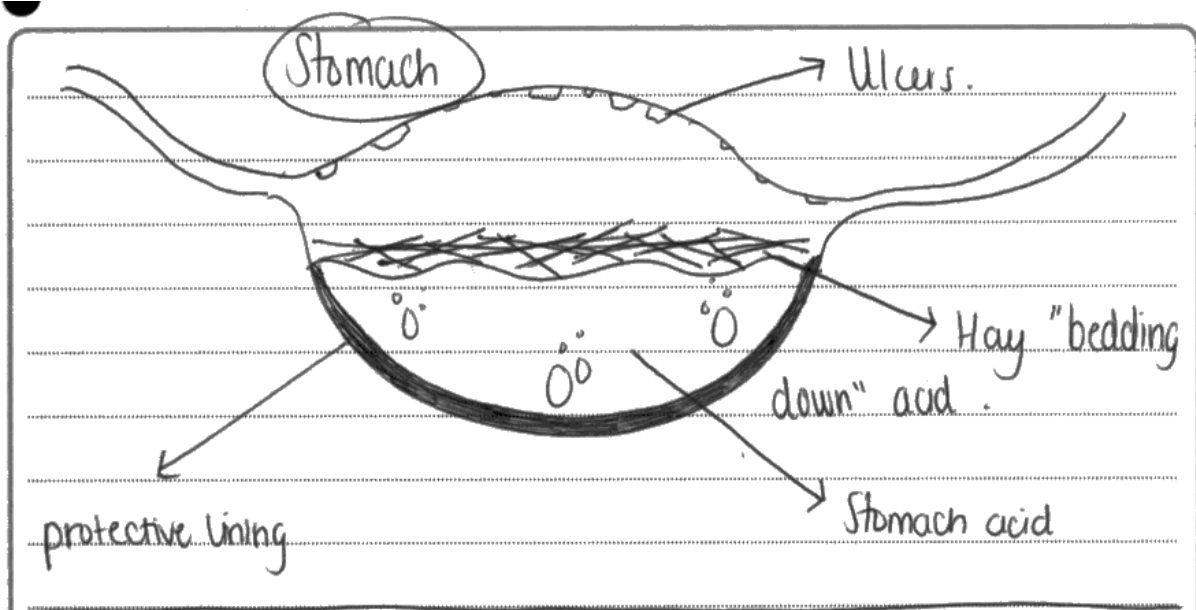 Stomach
Ulcers.
Hay "bedding
down" acid.
Stomach acid
protective lining